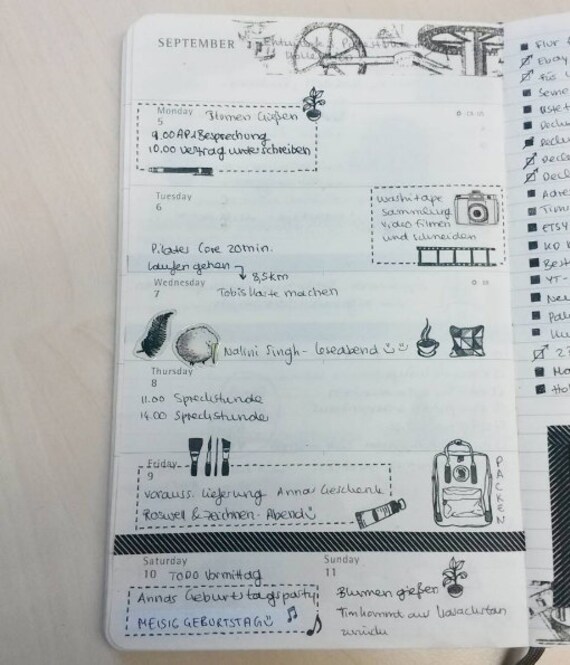 SEPTEMBER
Monday
5
Blumen Gießen
9.00 API Besprechung
10.00 Vertrag unterschreiben
Tuesday
6
Washi tape
Sammlung
Video filmen
und schneiden
Pilates Core 20min.
Laufen gehen
8,5km
Wednesday
7
Tobis Karte machen
Nalini Singh - Leseabend
Thursday
8
11.00 Sprechstunde
14.00 Sprechstunde
Friday
9
vorauss. Lieferung Annas Geschenk
Roswell & zeichnen - Abend
PACKEN
Saturday
10
TODO Vormittag
Annas Geburtstagsparty
MEISIG GEBURTSTAG
Sunday
11
Blumen gießen
Tim kommt aus
zurück
Flur
Ebay
für
Seine
Adre
Timu
ETSY
KD
Best
YT-
Neu